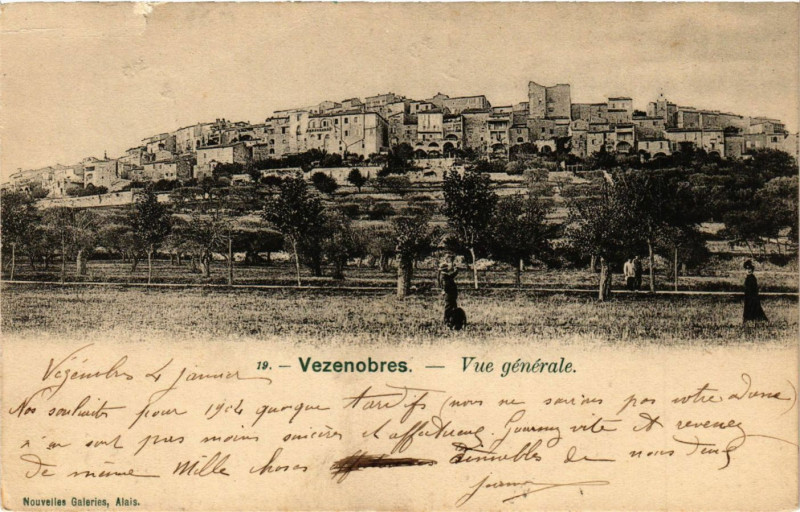 19. — Vezenobres. — Vue générale.
Vézénobres 4 Janvier
Nos souhaits pour 1904 quoique tardifs (nous ne savions pas votre adresse)
n'en sont pas moins sincères et affectueux. Guérissez vite et revenez
de même Mille choses aimables de nous deux
Nouvelles Galeries, Alais.